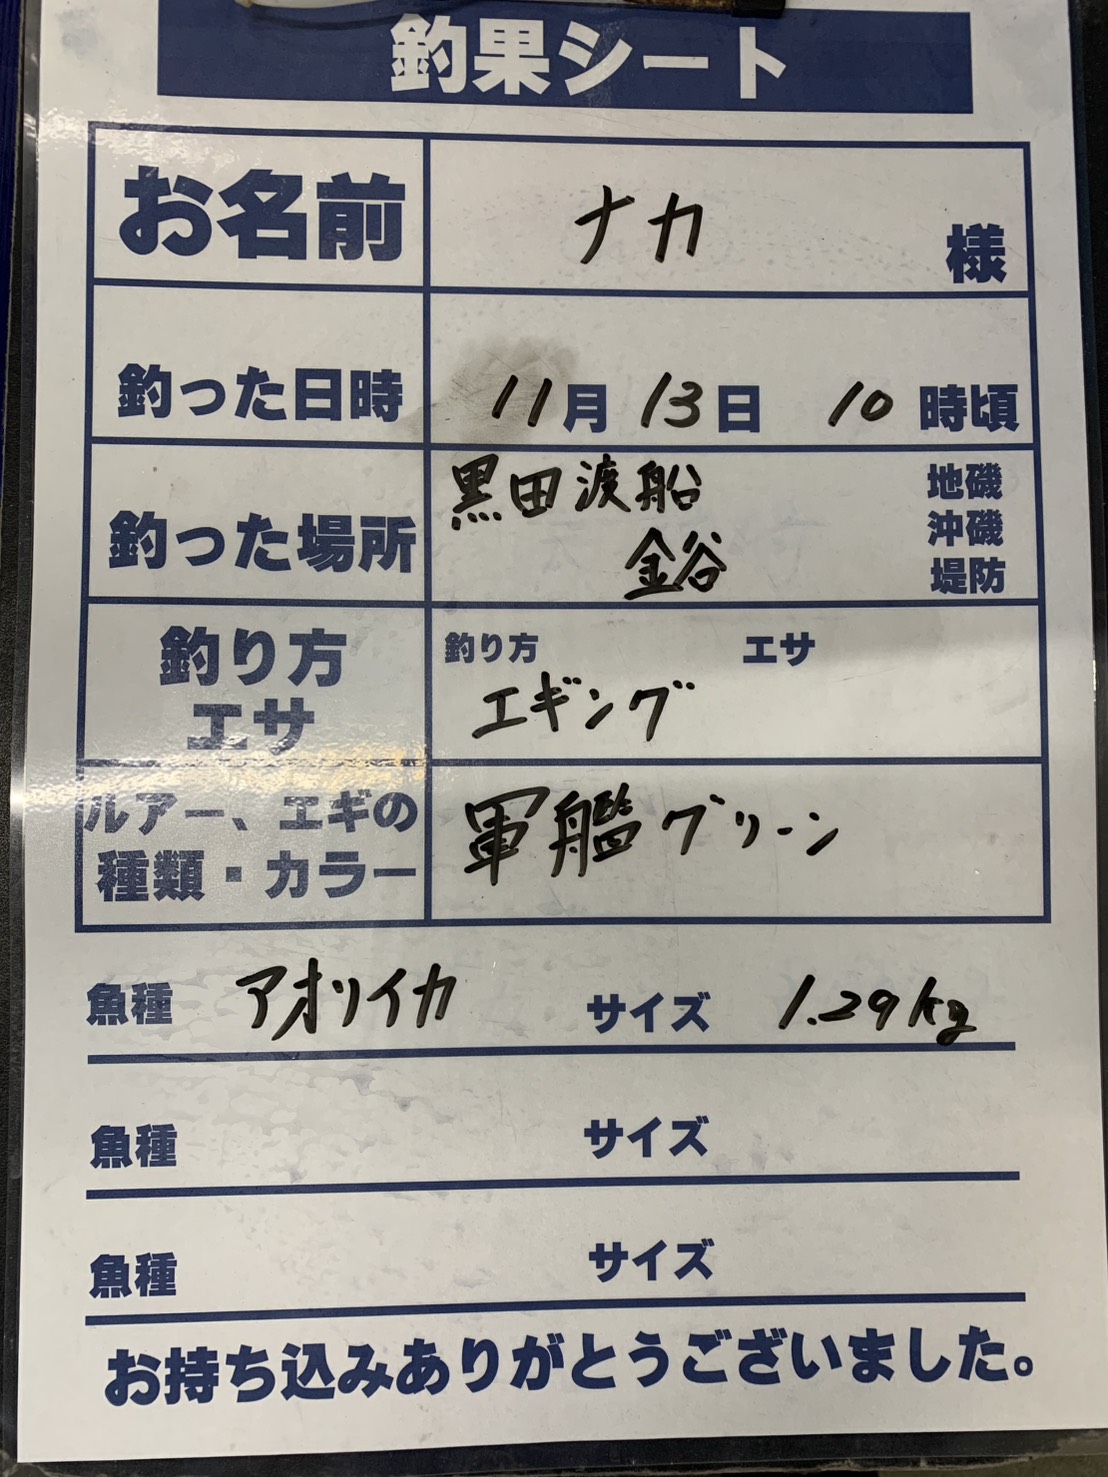 釣果シート
お名前 ナカ 様
釣った日時 11月13日 10時頃
釣った場所 黒田渡船 金谷 地磯 沖磯 堤防
釣り方 エサ
釣り方 エサ
エギング
ルアー、エギの種類・カラー 軍艦グリーン
魚種 アオリイカ サイズ 1.29kg
魚種 サイズ
魚種 サイズ
お持ち込みありがとうございました。